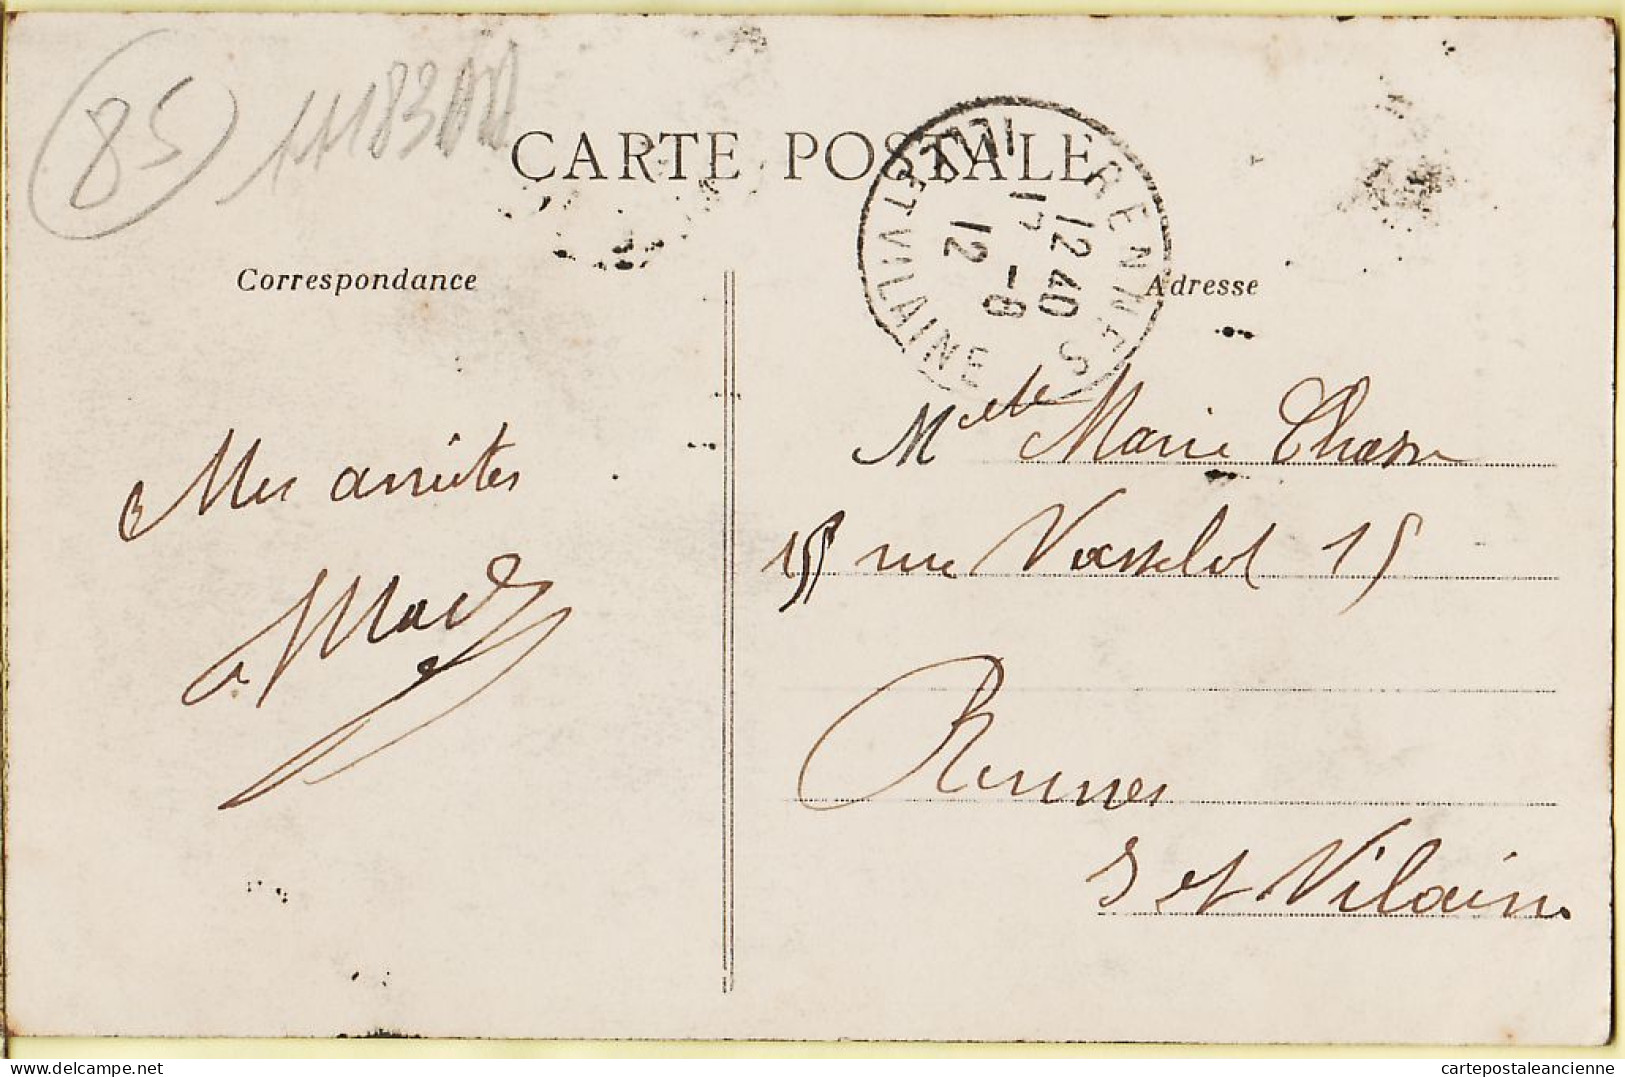 85
CARTE POSTALE
RENNES
ILLE ET VILAINE
12 40
17 -8
12
Correspondance
Adresse
Mes amitiés
Mlle Marie
15 rue Vasselot 15
Rennes
I et Vilaine
ma-te cecile
cartepostaleancienne